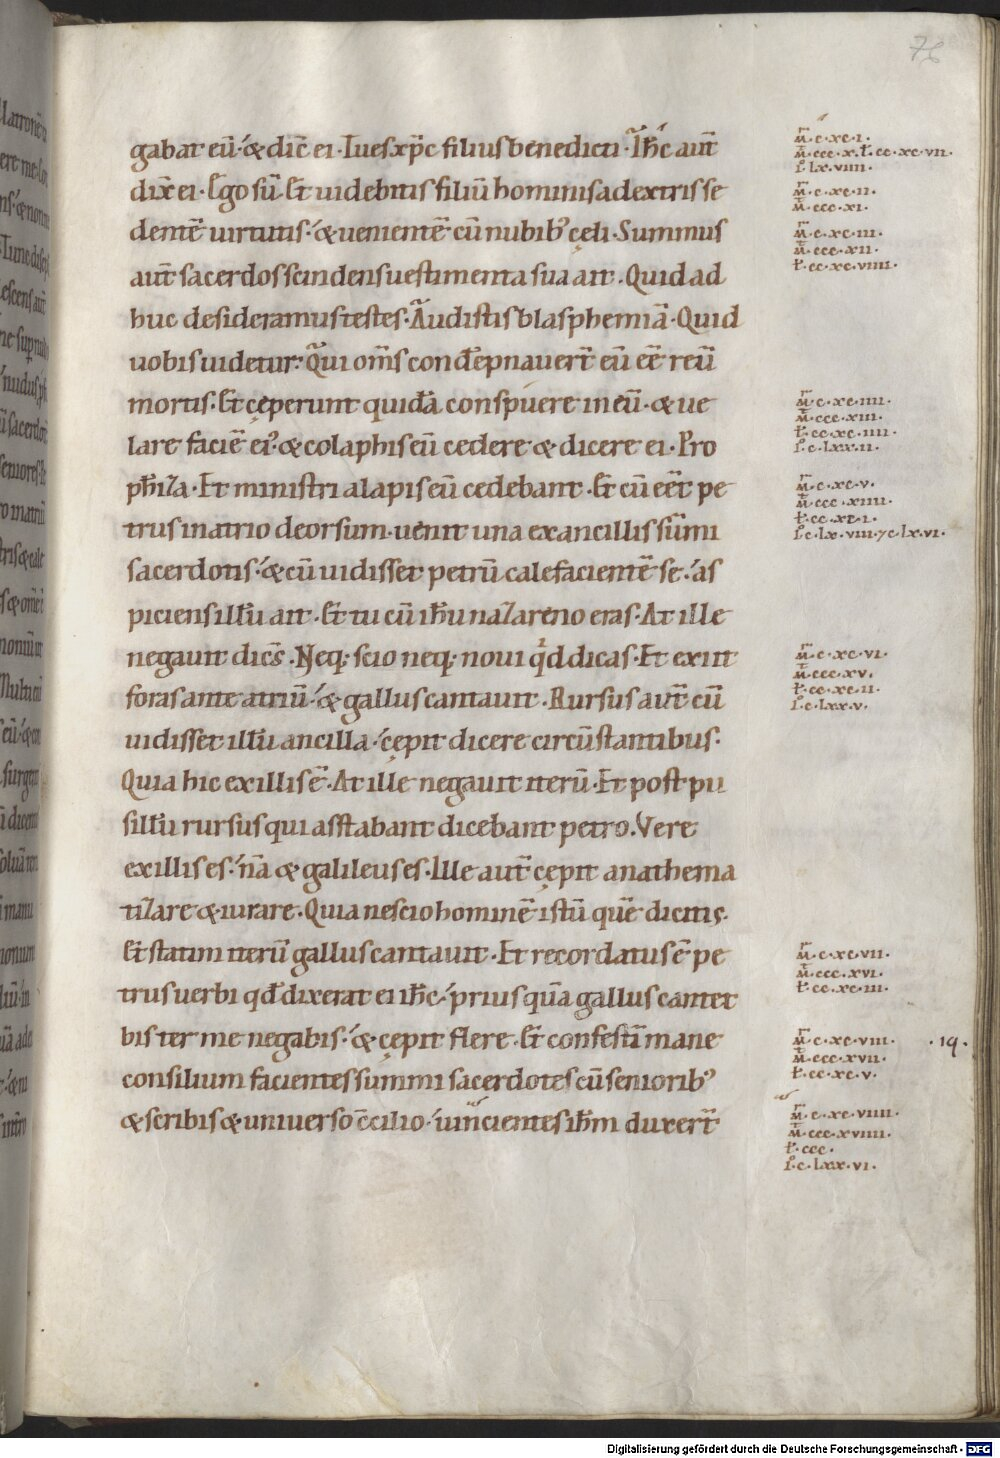 76
gabat eū· & dic̄ ei· Tu es xp̄c filius benedicti· Ih̄c aut̄
dix̄ ei· Ego sū· Et uidebitis filiū hominis a dextris se
dentē uirtutis· & uenientē cū nubib; cęli· Summus
aut̄ sacerdos scindens uestimenta sua ait· Quid ad
huc desideramus testes· Audistis blasphemiā· Quid
uobis uidetur· Qui om̄s condēpnauer̄t eū eē reū
mortis· Et cęperunt quidā conspuere in eū· & ue
lare faciē ei᾽· & colaphis eū cedere & dicere ei· Pro
phiza· Et ministri alapis eū cedebant· Et cū eēt pe
trus in atrio deorsum· uenit una ex ancillis sūmi
sacerdotis· & cū uidisset petrū calefacientē se· as
piciens illū ait· Et tu cū ih̄u nazareno eras· At ille
negauit dic̄s· Neq; scio neq; noui qd dicas· Et exiit
foras ante atriū· & gallus cantauit· Rursus aut̄ cū
uidisset illū ancilla· cępit dicere circūstantibus·
Quia hic ex illis ē· At ille negauit iterū· Et post pu
sillū rursus qui asstabant dicebant petro· Vere
ex illis es· nā & galileus es· Ille aut̄ cępit anathema
tizare & iurare· Quia nescio hominē istū quē dicitis·
Et statim iterū gallus cantauit· Et recordatus ē pe
trus uerbi qd̄ dixerat ei ih̄c· prius quā gallus cantet
bis ter me negabis· & cępit flere· Et confestī mane
consilium facientes summi sacerdotes cū seniorib;
& scribis & uniuerso c̄cilio· uincientes ih̄m duxer̄t
m̄·c·xc·i·
m̄·ccc·x·ł·cc·xc·vii·
i·lx·viiii·
m̄·c·xc·ii·
m̄·ccc·xi·
m̄·c·xc·iii·
m̄·ccc·xii·
ł·cc·xc·viiii·
m̄·c·xc·iiii·
m̄·ccc·xiii·
ł·cc·xc·iiii·
i·c·lxx·ii·
m̄·c·xc·v·
m̄·ccc·xiiii·
ł·cc·xc·i·
i·c·lx·viii·7c·lx·vi·
m̄·c·xc·vi·
m̄·ccc·xv·
ł·cc·xc·ii·
i·c·lxx·v·
m̄·c·xc·vii·
m̄·ccc·xvi·
ł·cc·xc·iii·
m̄·c·xc·viii·
·19·
m̄·ccc·xvii·
ł·cc·xc·v·
m̄·c·xc·viiii·
m̄·ccc·xviiii·
ł·ccc·
i·c·lxx·vi·
Digitalisierung gefördert durch die Deutsche Forschungsgemeinschaft - DFG